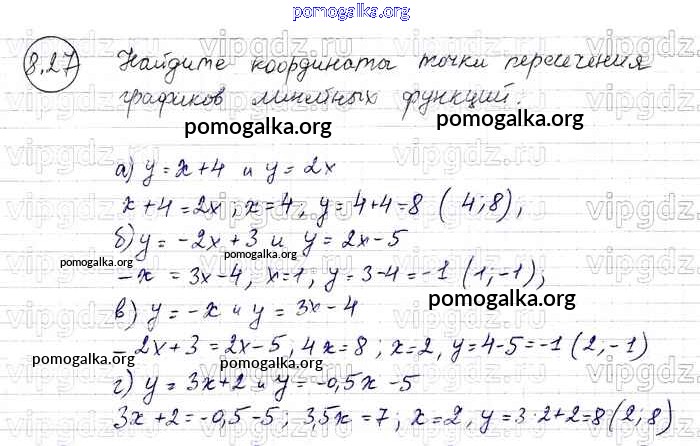 pomogalka.org
8.27 Найдите координаты точки пересечения
графиков линейных функций.
pomogalka.org
pomogalka.org
а) y = x + 4 и y = 2x
x + 4 = 2x ; x = 4 ; y = 4 + 4 = 8 ( 4; 8) ;
б) y = -2x + 3 и y = 2x - 5
pomogalka.org
-x = 3x - 4, x = 1, y = 3 - 4 = -1 (1; -1) ;
pomogalka.org
pomogalka.org
в) y = -x и y = 3x - 4
-2x + 3 = 2x - 5 ; 4x = 8 ; x = 2, y = 4 - 5 = -1 (2, -1)
pomogalka.org
pomogalka.org
г) y = 3x + 2 и y = -0,5x - 5
3x + 2 = -0,5 - 5 ; 3,5x = 7 ; x = 2, y = 3 · 2 + 2 = 8 (2; 8)
vipgdz.ru